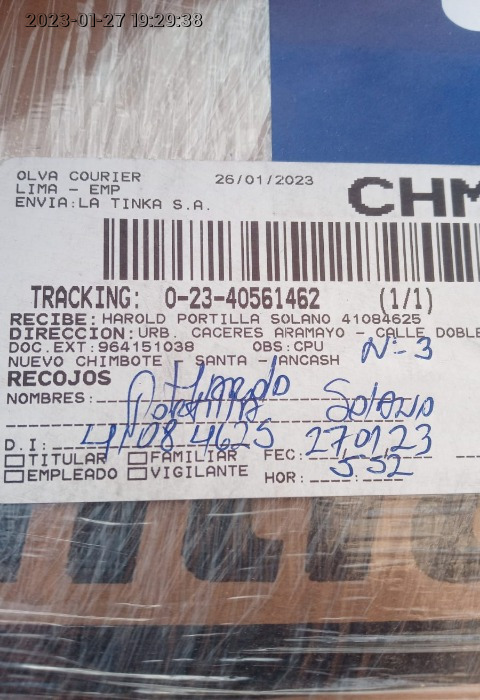 2023-01-27 19:29:38
OLVA COURIER 26/01/2023
LIMA - EMP
ENVIA:LA TINKA S.A.
CHM
TRACKING: 0-23-40561462 (1/1)
RECIBE: HAROLD PORTILLA SOLANO 41084625
DIRECCION: URB. CACERES ARAMAYO - CALLE DOBLE
DOC.EXT:964151038 OBS:CPU
NUEVO CHIMBOTE - SANTA -ANCASH N:-3
RECOJOS
NOMBRES: Harold
Portilla Solano
D.I: 41084625 27,01,23
TITULAR FAMILIAR FEC:
EMPLEADO VIGILANTE HOR: 552